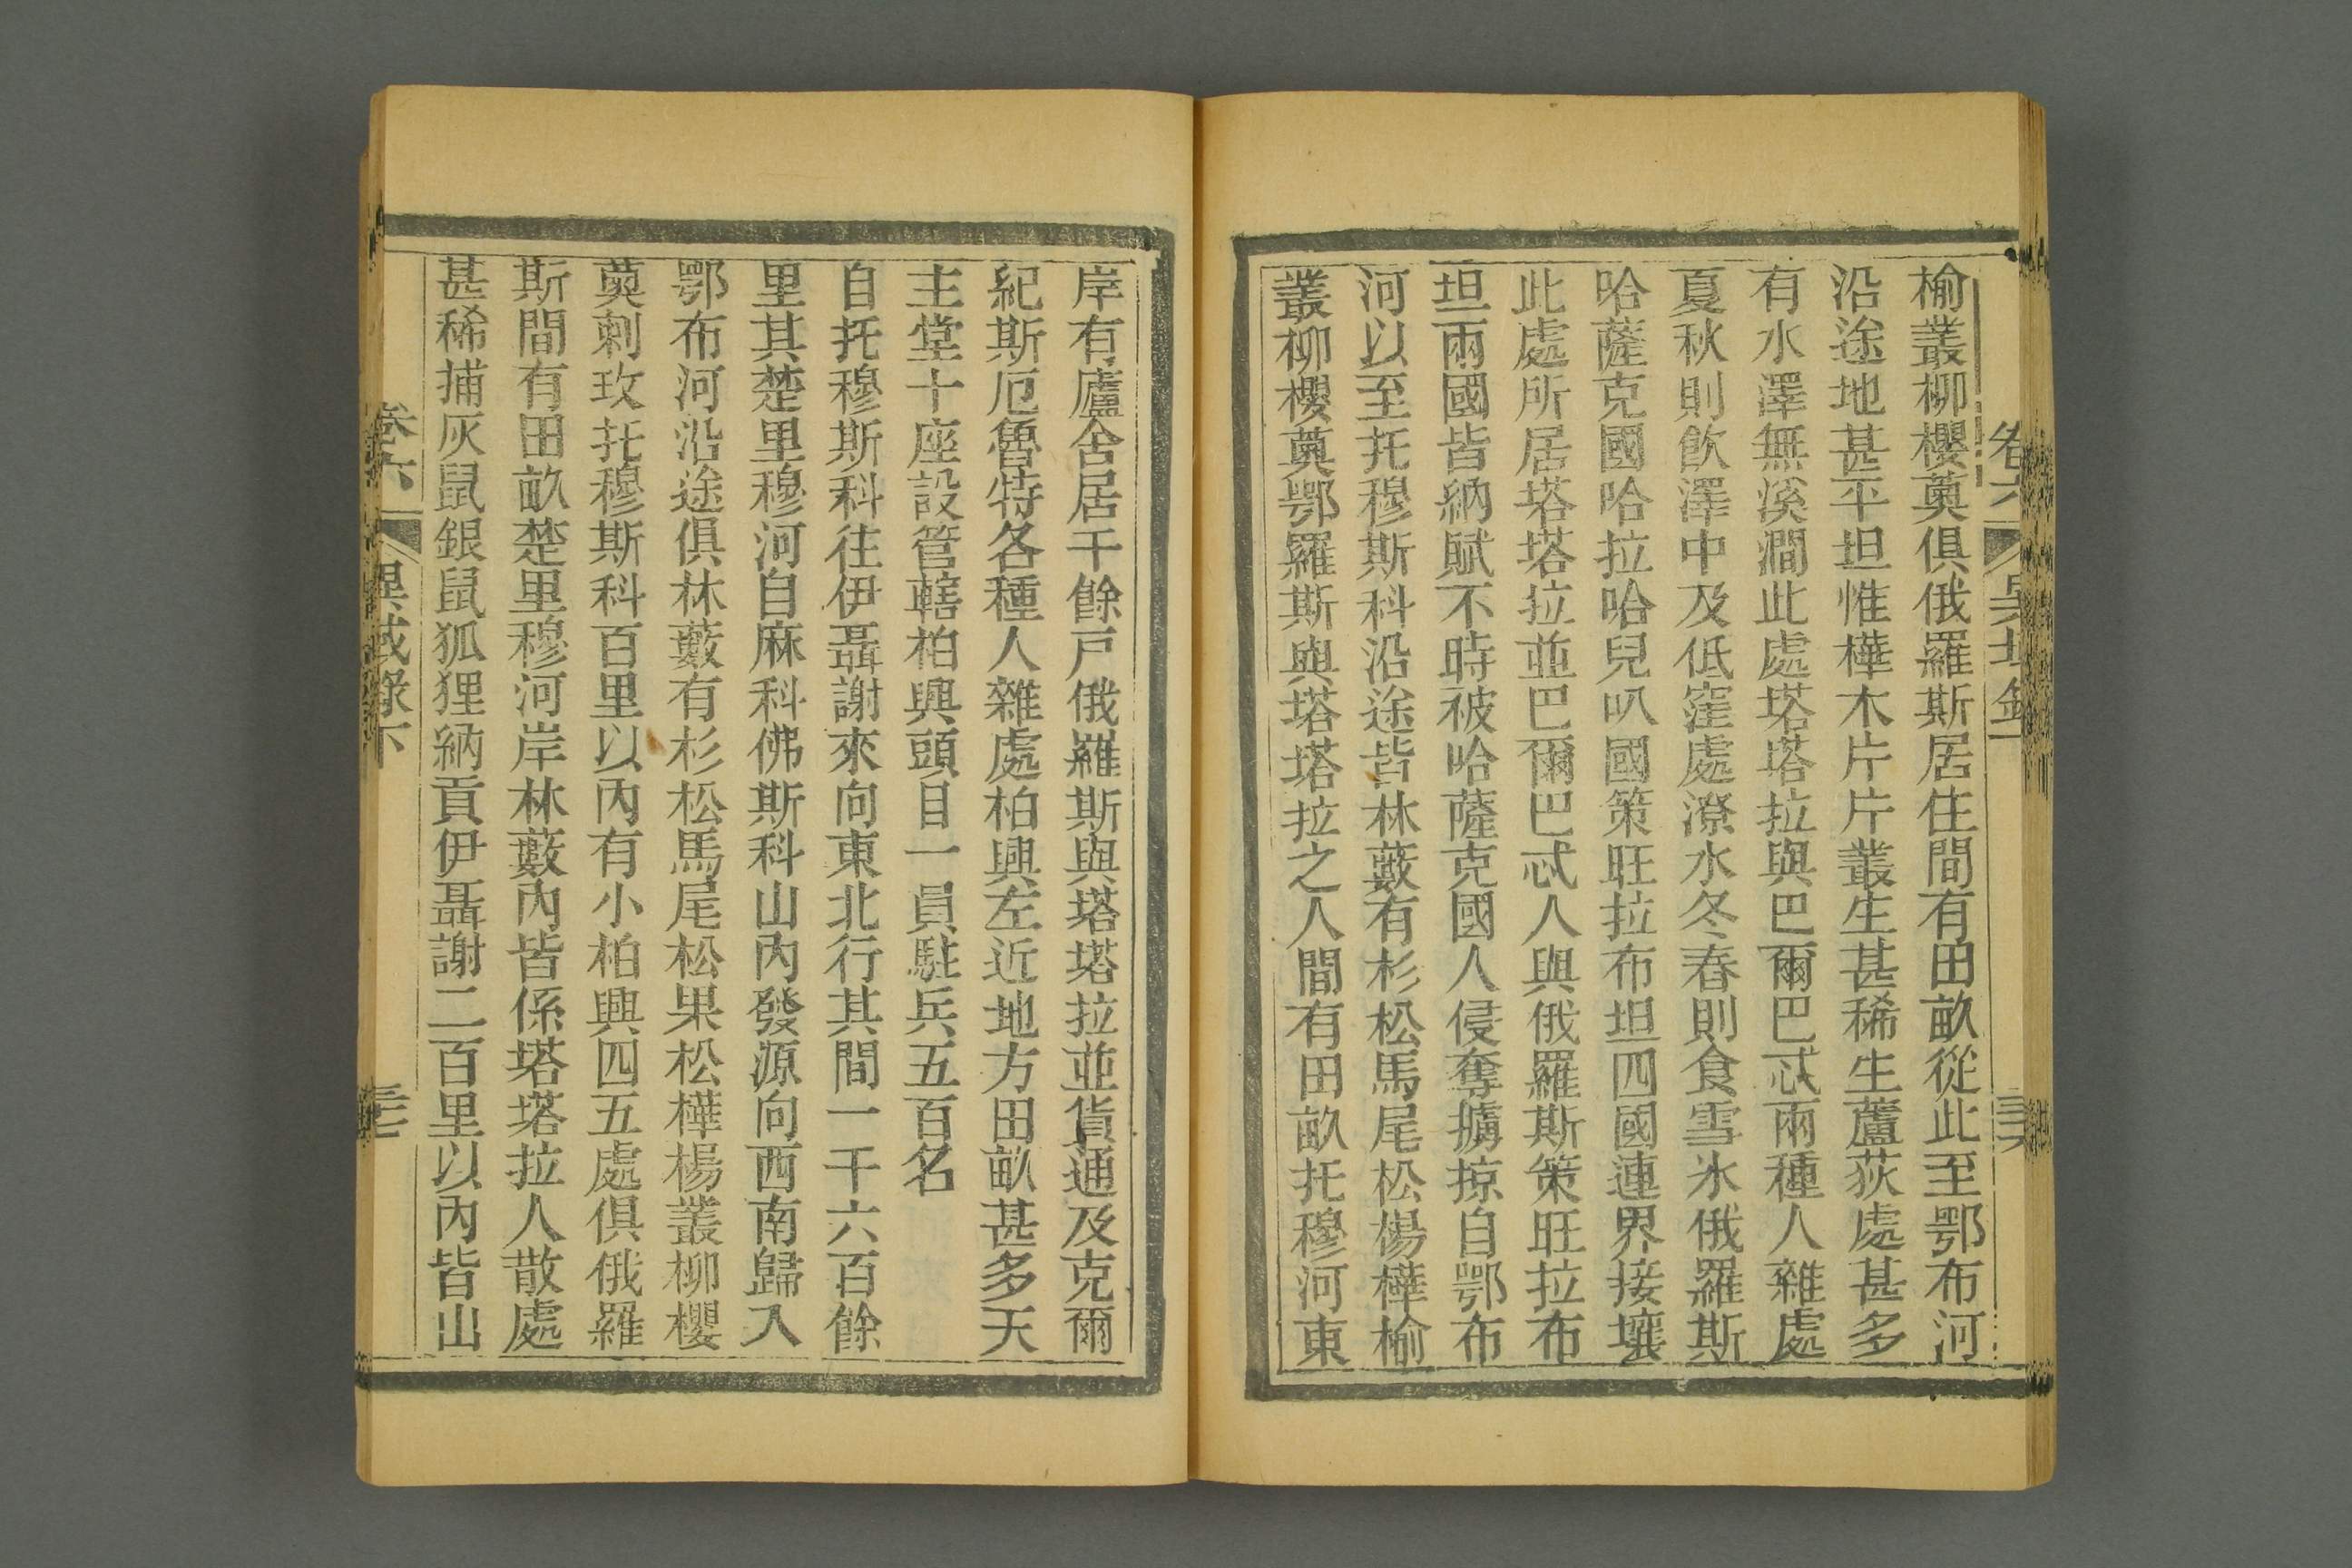 榆叢柳櫻薁俱俄羅斯居住間有田畝從此至鄂布河
沿途地甚平坦惟樺木片片叢生甚稀生蘆荻處甚多
有水澤無溪澗此處塔塔拉與巴爾巴忒兩種人雜處
夏秋則飲澤中及低窪處潦水冬春則食雪氷俄羅斯
哈薩克國哈拉哈兒叭國策旺拉布坦四國連界接壤
此處所居塔塔拉並巴爾巴忒人與俄羅斯策旺拉布
坦兩國皆納賦不時被哈薩克國人侵奪擄掠自鄂布
河以至托穆斯科沿途皆林藪有杉松馬尾松楊樺榆
叢柳櫻薁鄂羅斯與塔塔拉之人間有田畝托穆河東
岸有廬舍居千餘戸俄羅斯與塔塔拉並貨通及克爾
紀斯厄魯特各種人雜處柏興左近地方田畝甚多天
主堂十座設管轄柏興頭目一員駐兵五百名
自托穆斯科往伊聶謝來向東北行其間一千六百餘
里其楚里穆河自麻科佛斯科山內發源向西南歸入
鄂布河沿途俱林藪有杉松馬尾松果松樺楊叢柳櫻
薁刺玫托穆斯科百里以內有小柏興四五處俱俄羅
斯間有田畝楚里穆河岸林藪內皆係塔塔拉人散處
甚稀捕灰鼠銀鼠狐狸納貢伊聶謝二百里以內皆山
卷六
異域錄下